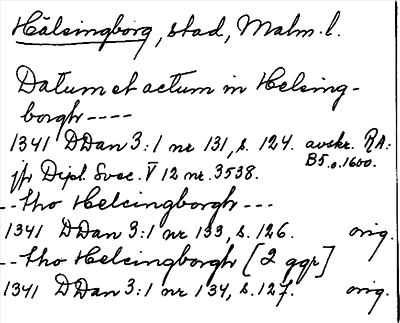 Hälsingborg, stad, Malm. l.
Datum et actum in Helsing-
borgh ----
1341 DDan 3:1 nr 131, s. 124. avskr. RA:
B5. o. 1600.
jfr Dipl. Svec. V 12 nr. 3538.
-- tho Helcingborgh ---
1341 DDan 3:1 nr 133, s. 126. orig.
-- tho Helcingborgh [2 ggr]
1341 DDan 3:1 nr 134, s. 127. orig.